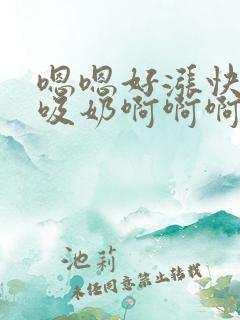 嗯嗯好涨快
吸奶啊啊啊
池莉
未经同意禁止转载